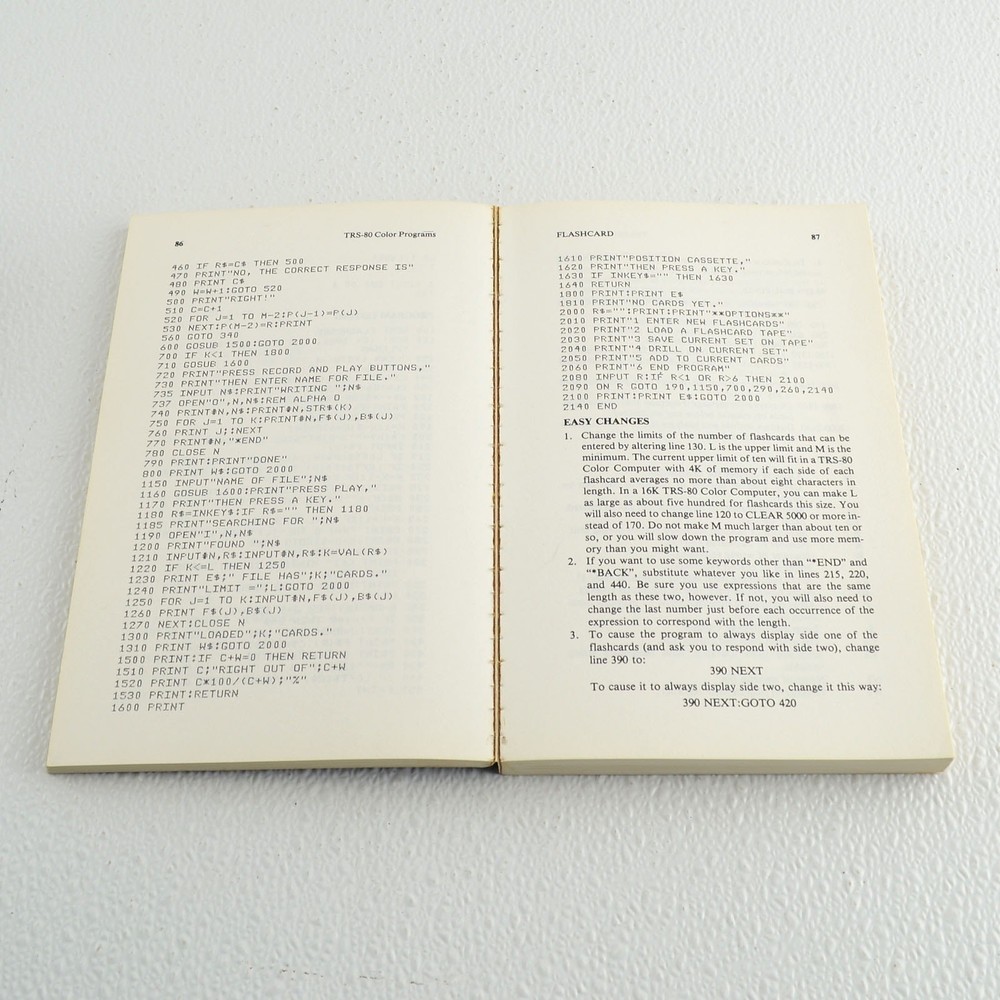 86
TRS-80 Color Programs
460 IF R$=C$ THEN 500
470 PRINT"NO, THE CORRECT RESPONSE IS"
480 PRINT C$
490 W=W+1:GOTO 520
500 PRINT"RIGHT!"
510 C=C+1
520 FOR J=1 TO M-2:P(J-1)=P(J)
530 NEXT:P(M-2)=R:PRINT
560 GOTO 340
600 GOSUB 1500:GOTO 2000
700 IF K<1 THEN 1800
710 GOSUB 1600
720 PRINT"PRESS RECORD AND PLAY BUTTONS,"
730 PRINT"THEN ENTER NAME FOR FILE."
735 INPUT N$:PRINT"WRITING ";N$
737 OPEN"O",N,N$:REM ALPHA O
740 PRINT#N,N$:PRINT#N,STR$(K)
750 FOR J=1 TO K:PRINT#N,F$(J),B$(J)
760 PRINT J;:NEXT
770 PRINT#N,"*END"
780 CLOSE N
790 PRINT:PRINT"DONE"
800 PRINT W$:GOTO 2000
1150 INPUT"NAME OF FILE";N$
1160 GOSUB 1600:PRINT"PRESS PLAY,"
1170 PRINT"THEN PRESS A KEY."
1180 R$=INKEY$:IF R$="" THEN 1180
1185 PRINT"SEARCHING FOR ";N$
1190 OPEN"I",N,N$
1200 PRINT"FOUND ";N$
1210 INPUT#N,R$:INPUT#N,R$:K=VAL(R$)
1220 IF K<=L THEN 1250
1230 PRINT E$;" FILE HAS";K;"CARDS."
1240 PRINT"LIMIT =";L:GOTO 2000
1250 FOR J=1 TO K:INPUT#N,F$(J),B$(J)
1260 PRINT F$(J),B$(J)
1270 NEXT:CLOSE N
1300 PRINT"LOADED";K;"CARDS."
1310 PRINT W$:GOTO 2000
1500 PRINT:IF C+W=0 THEN RETURN
1510 PRINT C;"RIGHT OUT OF";C+W
1520 PRINT C*100/(C+W);"%"
1530 PRINT:RETURN
1600 PRINT
FLASHCARD
87
1610 PRINT"POSITION CASSETTE,"
1620 PRINT"THEN PRESS A KEY."
1630 IF INKEY$="" THEN 1630
1640 RETURN
1800 PRINT:PRINT E$
1810 PRINT"NO CARDS YET."
2000 R$="":PRINT:PRINT"**OPTIONS**"
2010 PRINT"1 ENTER NEW FLASHCARDS"
2020 PRINT"2 LOAD A FLASHCARD TAPE"
2030 PRINT"3 SAVE CURRENT SET ON TAPE"
2040 PRINT"4 DRILL ON CURRENT SET"
2050 PRINT"5 ADD TO CURRENT CARDS"
2060 PRINT"6 END PROGRAM"
2080 INPUT R:IF R<1 OR R>6 THEN 2100
2090 ON R GOTO 190,1150,700,290,260,2140
2100 PRINT:PRINT E$:GOTO 2000
2140 END
EASY CHANGES
1. Change the limits of the number of flashcards that can be
entered by altering line 130. L is the upper limit and M is the
minimum. The current upper limit of ten will fit in a TRS-80
Color Computer with 4K of memory if each side of each
flashcard averages no more than about eight characters in
length. In a 16K TRS-80 Color Computer, you can make L
as large as about five hundred for flashcards this size. You
will also need to change line 120 to CLEAR 5000 or more in-
stead of 170. Do not make M much larger than about ten or
so, or you will slow down the program and use more mem-
ory than you might want.
2. If you want to use some keywords other than "*END" and
"*BACK", substitute whatever you like in lines 215, 220,
and 440. Be sure you use expressions that are the same
length as these two, however. If not, you will also need to
change the last number just before each occurrence of the
expression to correspond with the length.
3. To cause the program to always display side one of the
flashcards (and ask you to respond with side two), change
line 390 to:
390 NEXT
To cause it to always display side two, change it this way:
390 NEXT:GOTO 420